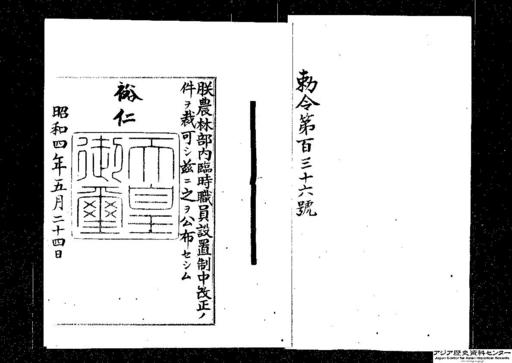 勅令第百三十六號
朕農林部内臨時職員設置制中改正ノ
件ヲ裁可シ茲ニ之ヲ公布セシム
裕仁
天皇御璽
昭和四年五月二十四日
アジア歴史資料センター
Japan Center for Asian Historical Records